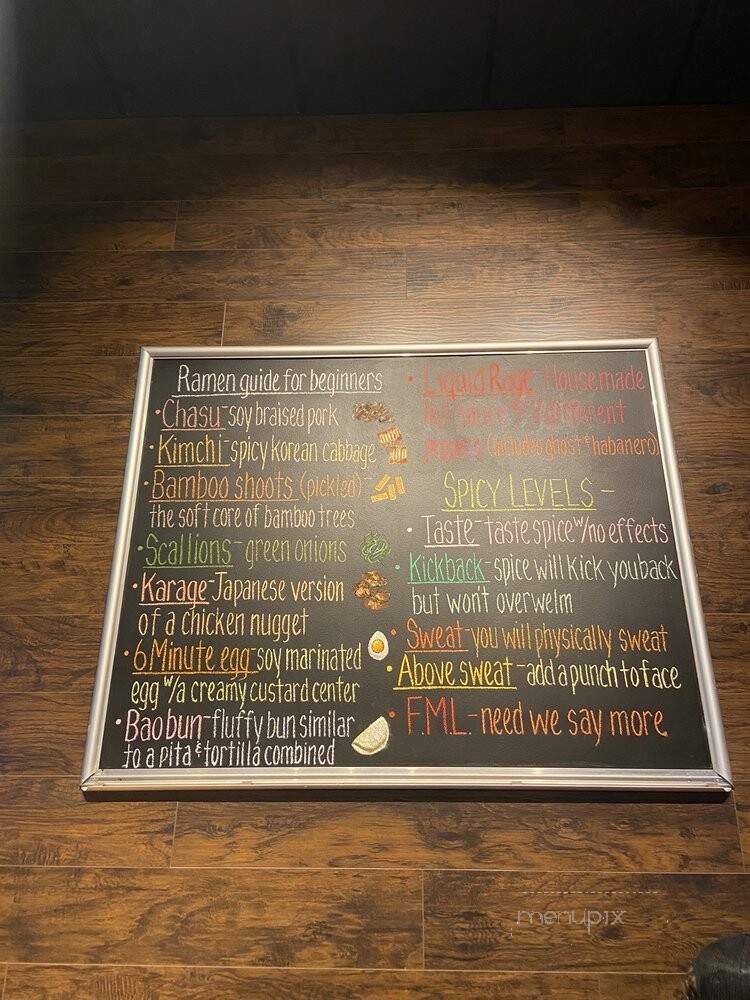 Ramen guide for beginners
• Chasu - soy braised pork
• Kimchi - spicy korean cabbage
• Bamboo shoots (pickled) -
the soft core of bamboo trees
• Scallions - green onions
• Karage - Japanese version
of a chicken nugget
• 6 Minute egg - soy marinated
egg w/a creamy custard center
• Bao bun - fluffy bun similar
to a pita & tortilla combined
• Liquid Rage - House made
hot sauce different
(includes ghost & habanero)
SPICY LEVELS -
• Taste - taste spice w/no effects
• Kickback - spice will kick you back
but won't overwelm
• Sweat - you will physically sweat
• Above sweat - add a punch to face
• F.M.L. - need we say more
menupix